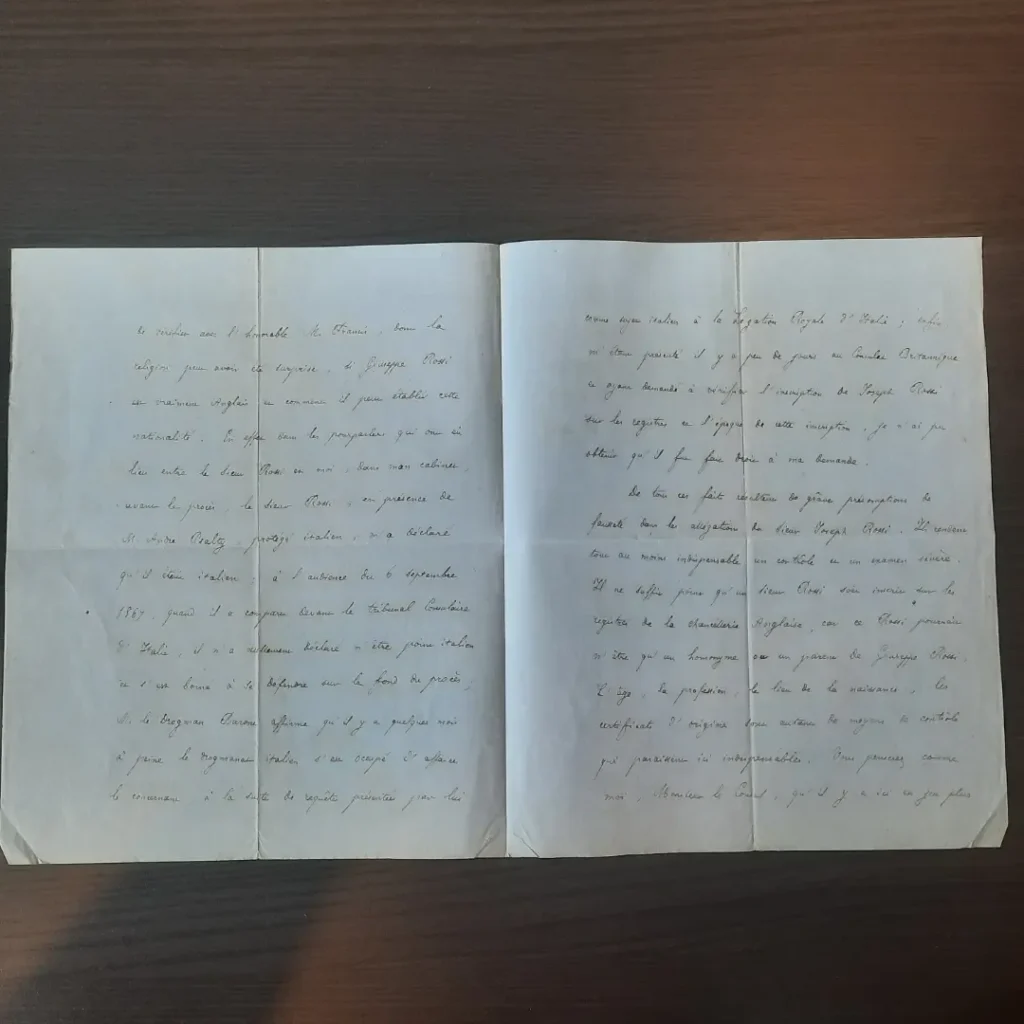 de vérifier avec l'honorable M. Francis, dont la
religion peut avoir été surprise, si Giuseppe Rossi
est vraiment Anglais et comment il peut établir cette
nationalité. En effet dans les pourparlers qui ont eu
lieu entre le sieur Rossi et moi, dans mon cabinet,
avant le procès, le sieur Rossi, en présence de
M. André Psalty, protégé italien, m'a déclaré
qu'il était italien ; à l'audience du 6 septembre
1867, quand il a comparu devant le tribunal Consulaire
d'Italie, il n'a nullement déclaré n'être point italien
et s'est borné à se défendre sur le fond du procès ;
M. le Drogman Barone affirme qu'il y a quelques mois
à peine le drogmanat italien s'est occupé d'affaire
le concernant à la suite de requête présentée par lui
comme sujet italien à la Légation Royale d'Italie ; enfin
m'étant présenté il y a peu de jours au Consulat Britannique
et ayant demandé à vérifier l'inscription de Joseph Rossi
sur les registres et l'époque de cette inscription, je n'ai pu
obtenir qu'il fut fait droit à ma demande.
De tous ces faits résultent de graves présomptions de
fausseté dans les allégations du sieur Joseph Rossi. Ils rendent
tout au moins indispensable un contrôle et un examen sévère.
Il ne suffit point qu'un sieur Rossi soit inscrit sur les
registres de la chancellerie Anglaise, car ce Rossi pourrait
n'être qu'un homonyme ou un parent de Giuseppe Rossi.
L'âge, la profession, le lieu de la naissance, les
certificats d'origine sont autant de moyens de contrôle
qui paraissent ici indispensables. Vous penserez comme
moi, Monsieur le Consul, qu'il y a ici en jeu plus